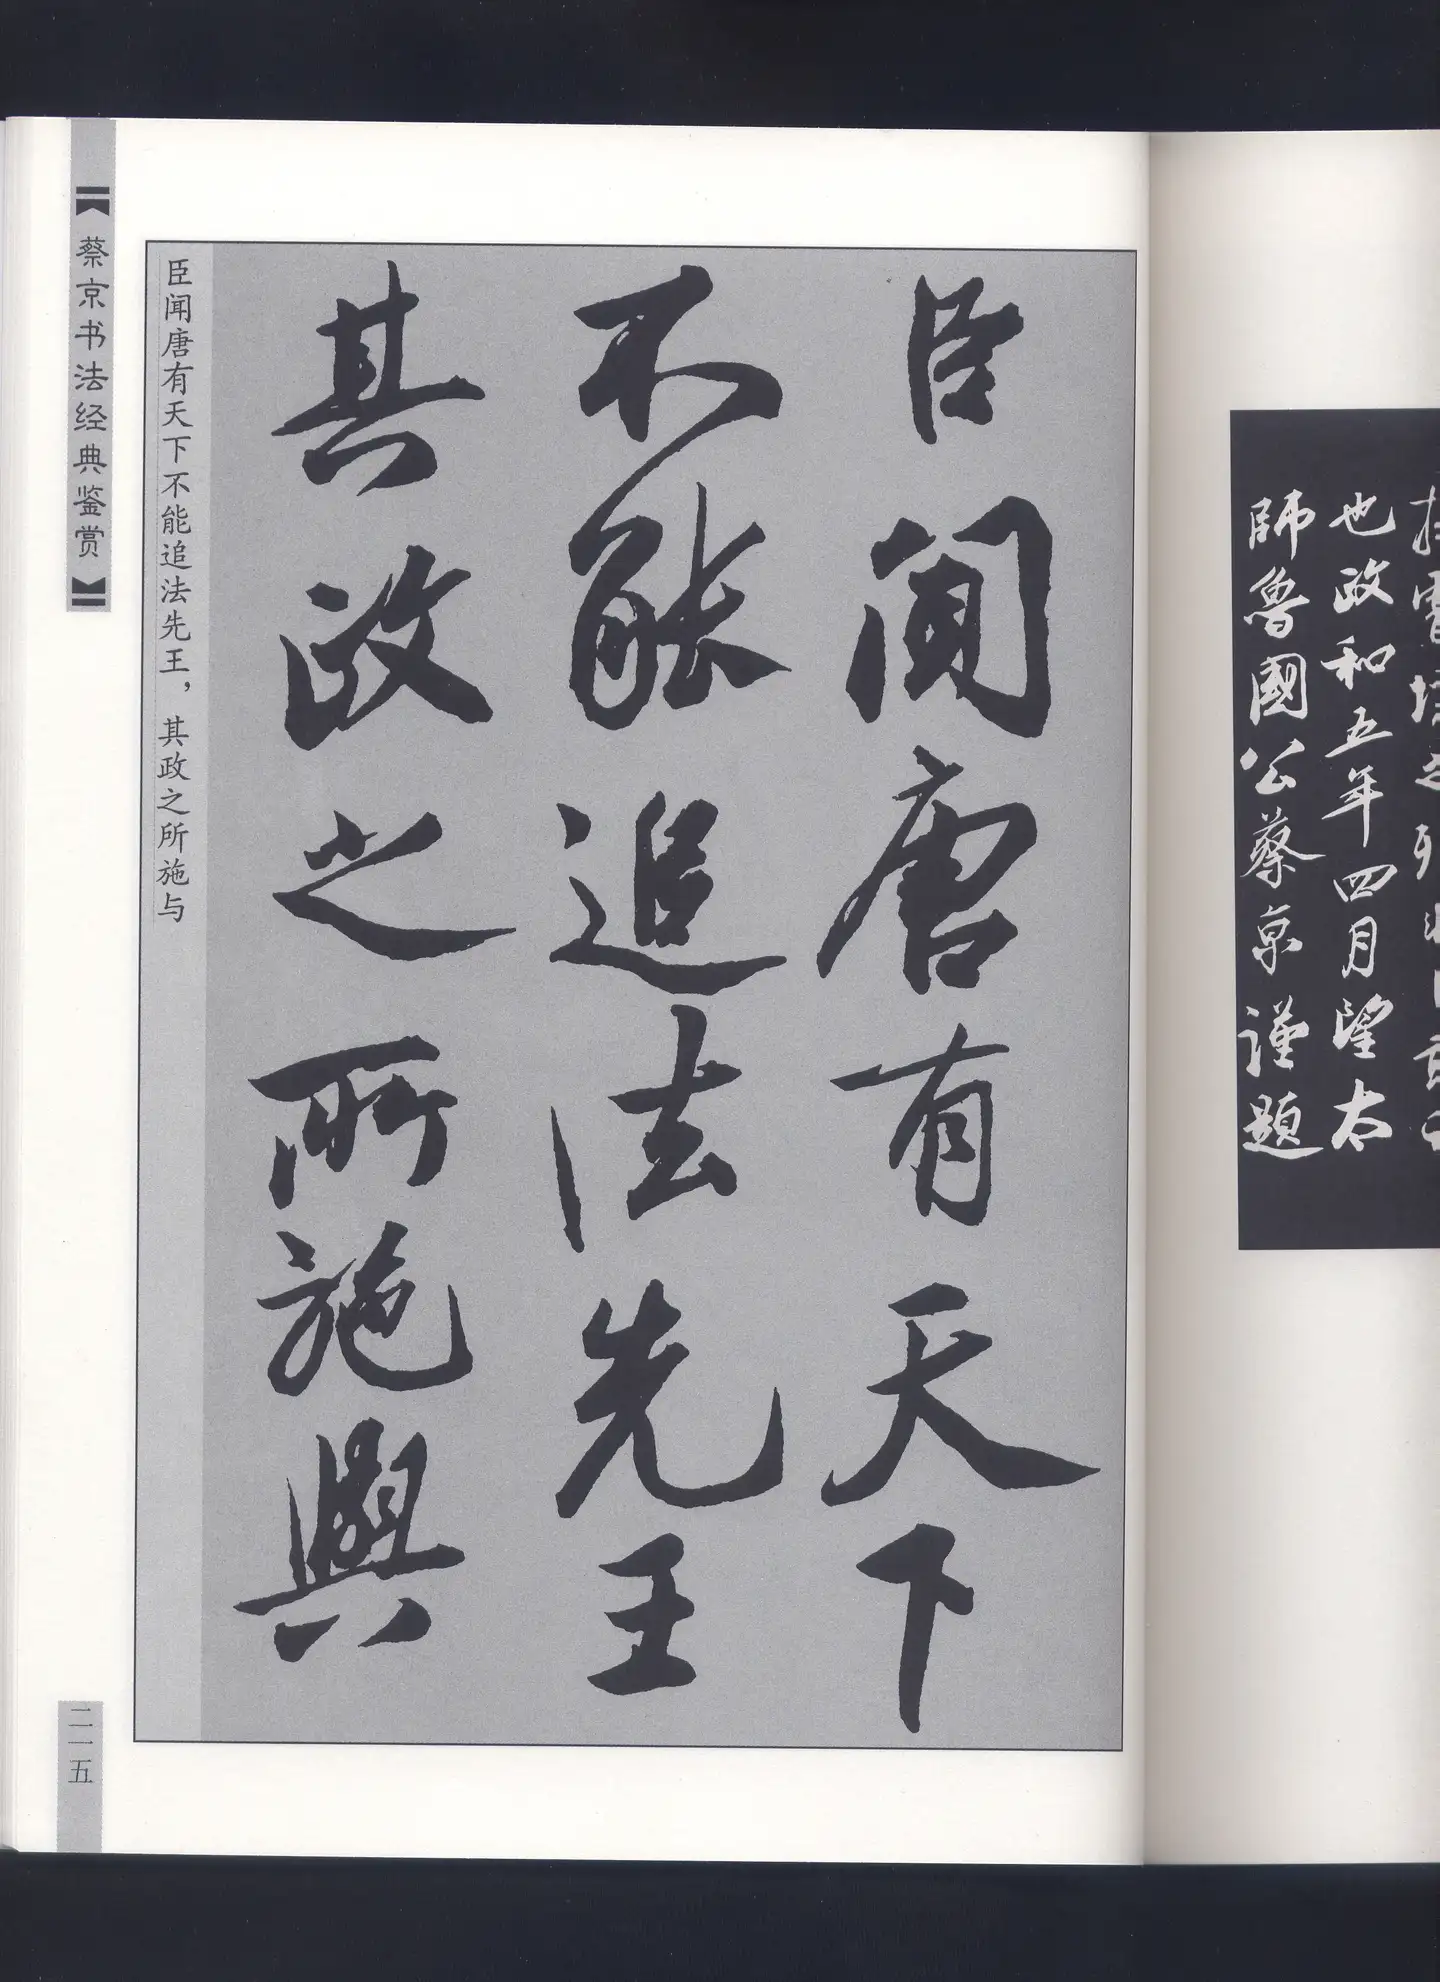 師魯國公蔡京謹題
也政和五年四月望太
臣聞唐有天下
不能追法先王
其政之所施與
臣闻唐有天下不能追法先王，其政之所施与
【蔡京书法经典鉴赏】
二一五